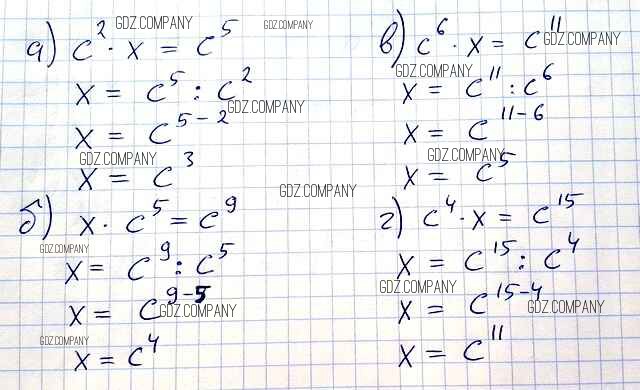 а) c² · x = c⁵
x = c⁵ : c²
x = c⁵⁻²
x = c³
б) x · c⁵ = c⁹
x = c⁹ : c⁵
x = c⁹⁻⁵
x = c⁴
в) c⁶ · x = c¹¹
x = c¹¹ : c⁶
x = c¹¹⁻⁶
x = c⁵
г) c⁴ · x = c¹⁵
x = c¹⁵ : c⁴
x = c¹⁵⁻⁴
x = c¹¹
GDZ.COMPANY
GDZ.COMPANY
GDZ.COMPANY
GDZ.COMPANY
GDZ.COMPANY
GDZ.COMPANY
GDZ.COMPANY
GDZ.COMPANY
GDZ.COMPANY
GDZ.COMPANY
GDZ.COMPANY
GDZ.COMPANY
GDZ.COMPANY